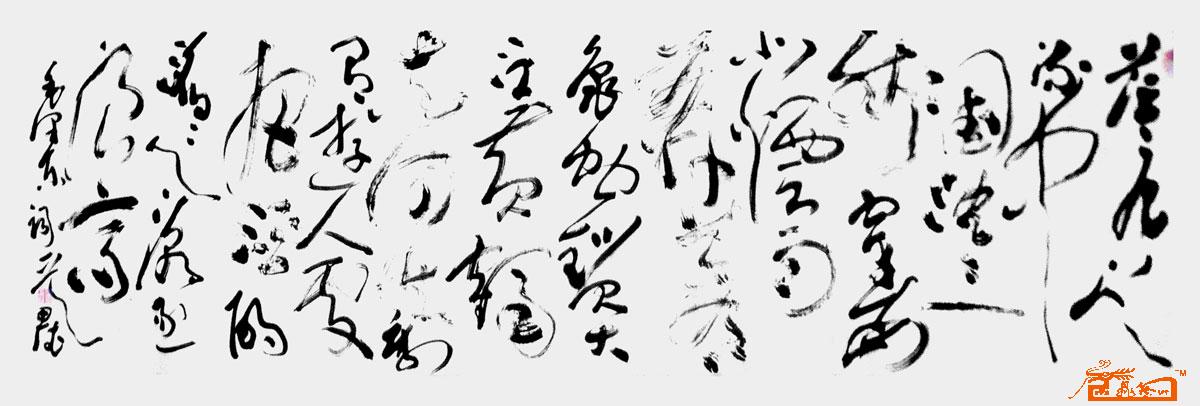 茫々九派
流中
國沉々一
线穿南
北烟雨
莽苍苍
龟蛇锁大
江黄鹤
知何去剩
有游人处
把酒酹
滔々心潮逐
浪高
毛泽东词